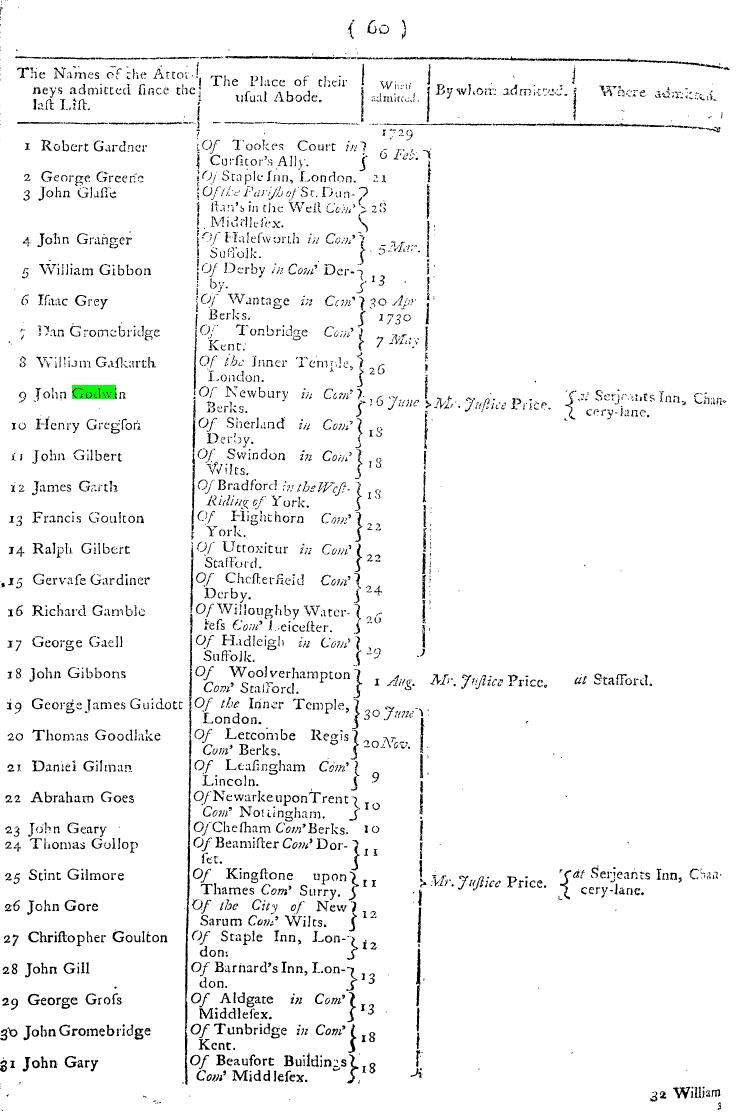 ( 60 )
The Names of the Attor- The Place of their When By whom admitted. Where admitted.
neys admitted since the usual Abode. admitted.
last List.
1729
1 Robert Gardner Of Tookes Court in 6 Feb.
Cursitor's Ally.
2 George Greene Of Staple Inn, London. 21
3 John Glasse Of the Parish of St. Dun-
stan's in the West Com' 28
Middlesex.
4 John Granger Of Halesworth in Com' 5 Mar.
Suffolk.
5 William Gibbon Of Derby in Com' Der- 13
by.
6 Isaac Grey Of Wantage in Com' 30 Apr
Berks. 1730
7 Dan Gromebridge Of Tonbridge Com' 7 May
Kent.
8 William Gaskarth Of the Inner Temple, 26
London.
9 John Godwin Of Newbury in Com' 16 June Mr. Justice Price. at Serjeants Inn, Chan-
Berks. cery-lane.
10 Henry Gregson Of Sherland in Com' 18
Derby.
11 John Gilbert Of Swindon in Com' 18
Wilts.
12 James Garth Of Bradford in the West- 18
Riding of York.
13 Francis Goulton Of Highthorn Com' 22
York.
14 Ralph Gilbert Of Uttoxitur in Com' 22
Stafford.
15 Gervase Gardiner Of Chesterfield Com' 24
Derby.
16 Richard Gamble Of Willoughby Water- 26
less Com' Leicester.
17 George Gaell Of Hadleigh in Com' 29
Suffolk.
18 John Gibbons Of Woolverhampton 1 Aug. Mr. Justice Price. at Stafford.
Com' Stafford.
19 George James Guidott Of the Inner Temple, 30 June
London.
20 Thomas Goodlake Of Letcombe Regis 20 Nov.
Com' Berks.
21 Daniel Gilman Of Leasingham Com' 9
Lincoln.
22 Abraham Goes Of Newarke upon Trent 10
Com' Nottingham.
23 John Geary Of Chesham Com' Berks. 10
24 Thomas Gollop Of Beamister Com' Dor- 11
set.
25 Stint Gilmore Of Kingstone upon 11 Mr. Justice Price. at Serjeants Inn, Chan-
Thames Com' Surry. cery-lane.
26 John Gore Of the City of New 12
Sarum Com' Wilts.
27 Christopher Goulton Of Staple Inn, Lon- 12
don:
28 John Gill Of Barnard's Inn, Lon- 13
don.
29 George Gross Of Aldgate in Com' 13
Middlesex.
30 John Gromebridge Of Tunbridge in Com' 18
Kent.
31 John Gary Of Beaufort Buildings 18
Com' Middlesex.
32 William
3